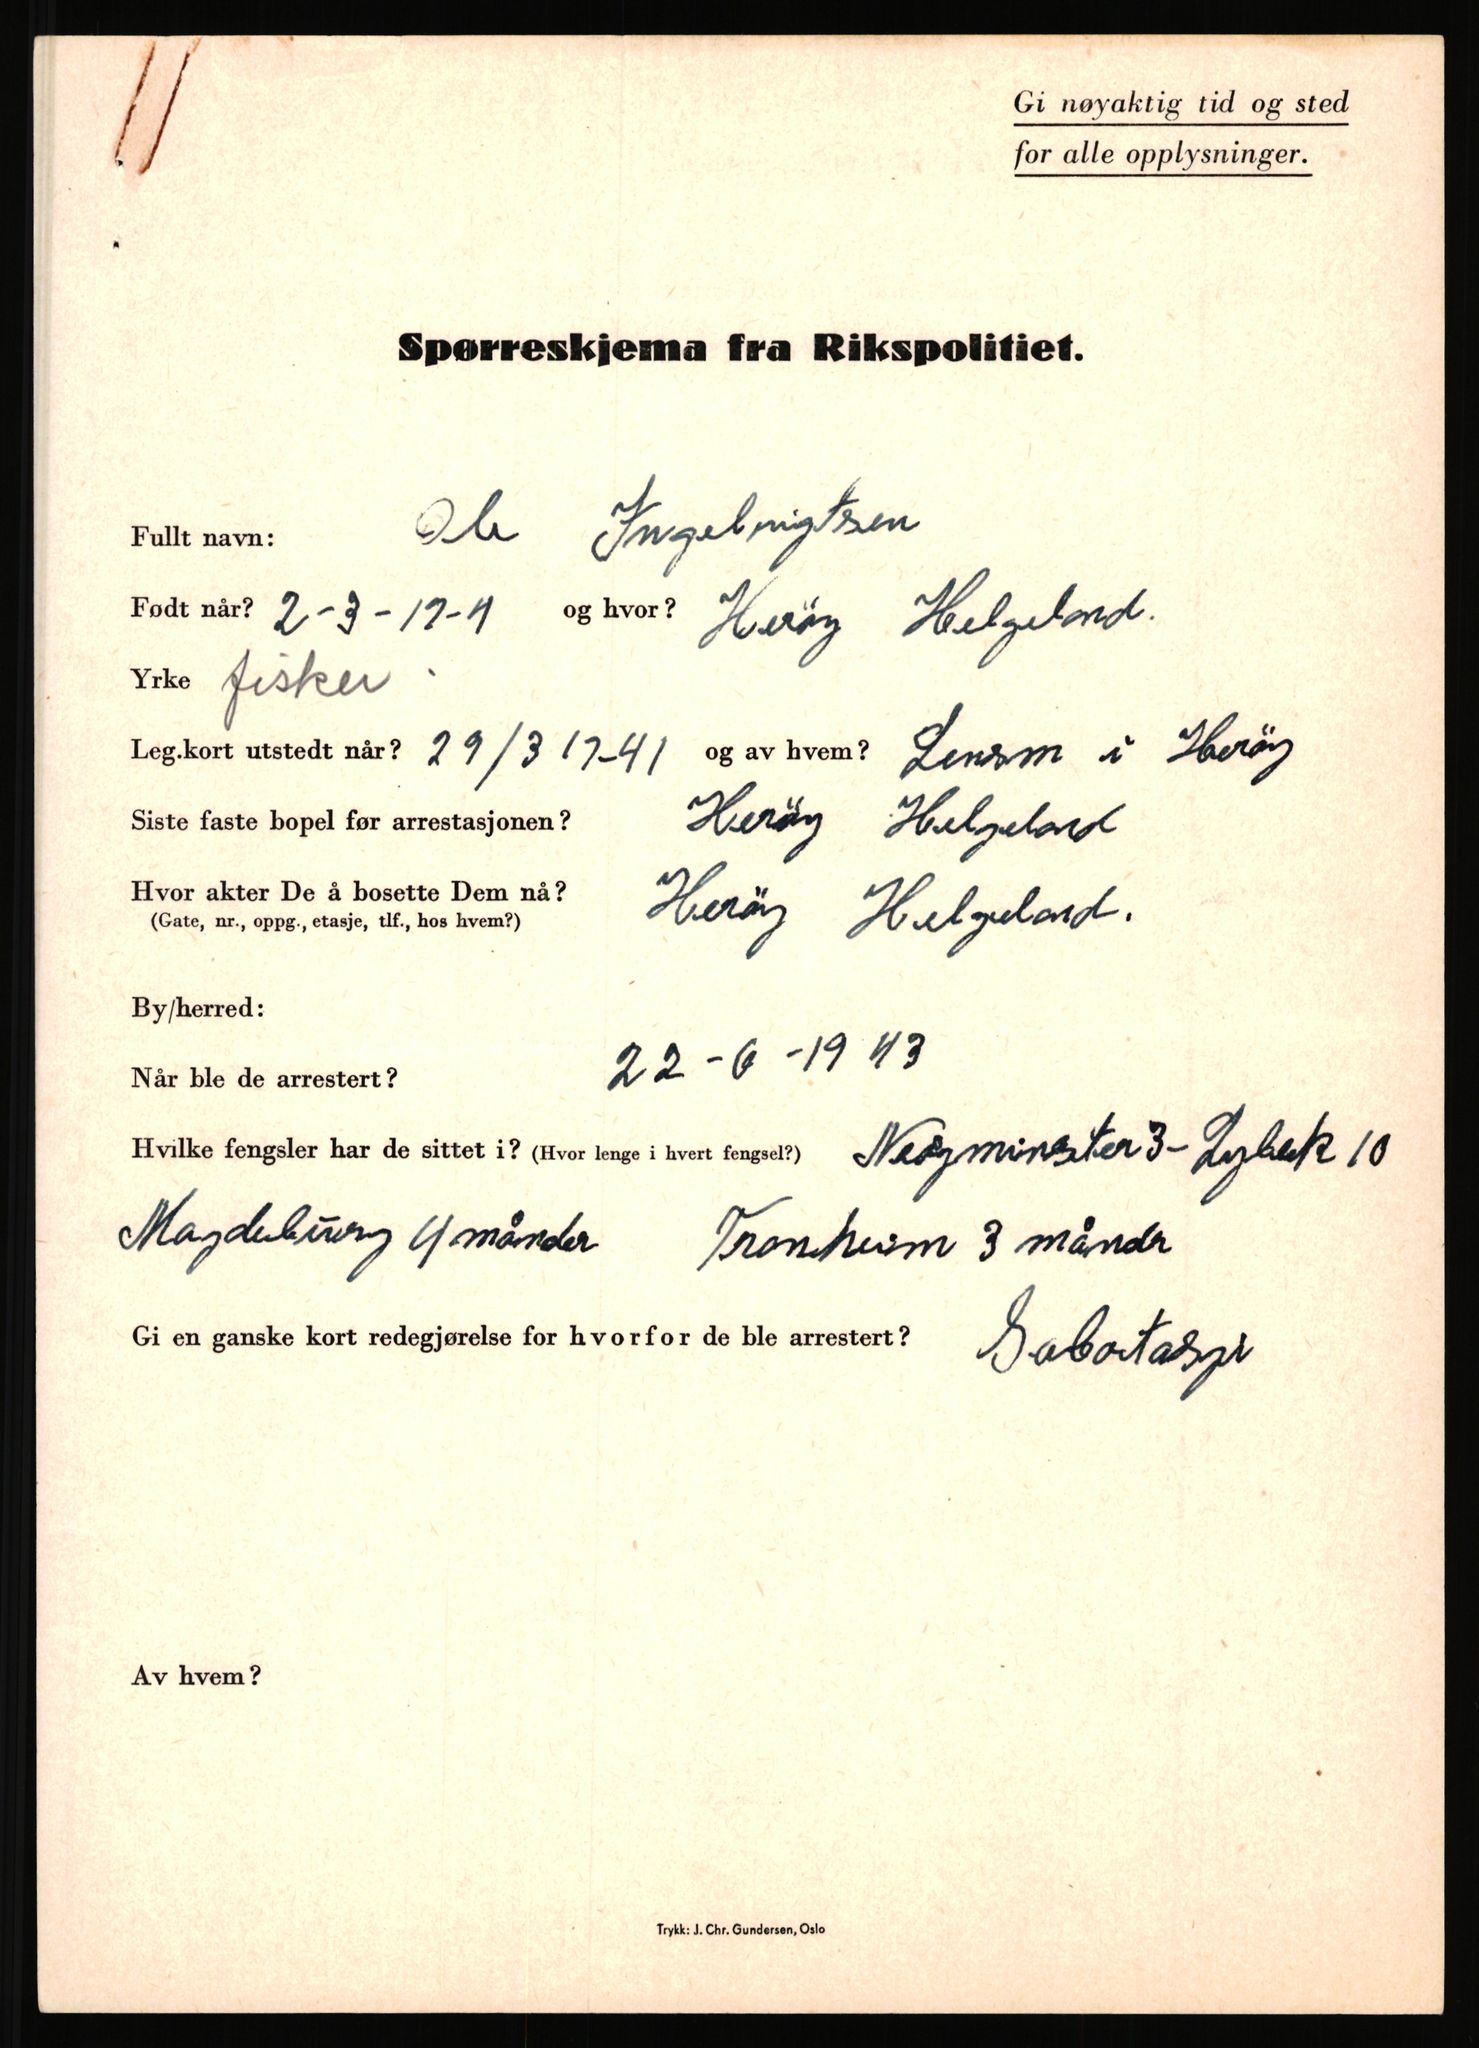 Gi nøyaktig tid og sted
for alle opplysninger.
Spørreskjema fra Rikspolitiet.
Fullt navn: Ole Ingebrigtsen
Født når? 2-3-17-4 og hvor? Heröy Helgeland.
Yrke fisker
Leg.kort utstedt når? 29/3 17-41 og av hvem? Lensm i Heröy
Siste faste bopel før arrestasjonen? Heröy Helgeland
Hvor akter De å bosette Dem nå? Heröy Helgeland.
(Gate, nr., oppg., etasje, tlf., hos hvem?)
By/herred:
Når ble de arrestert? 22-6-1943
Hvilke fengsler har de sittet i? (Hvor lenge i hvert fengsel?) Neoyminster 3- Lybek 10
Magdebürg 4 månder Tronheim 3 månder
Gi en ganske kort redegjørelse for hvorfor de ble arrestert? Sabotasje
Av hvem?
Trykk: J. Chr. Gundersen, Oslo